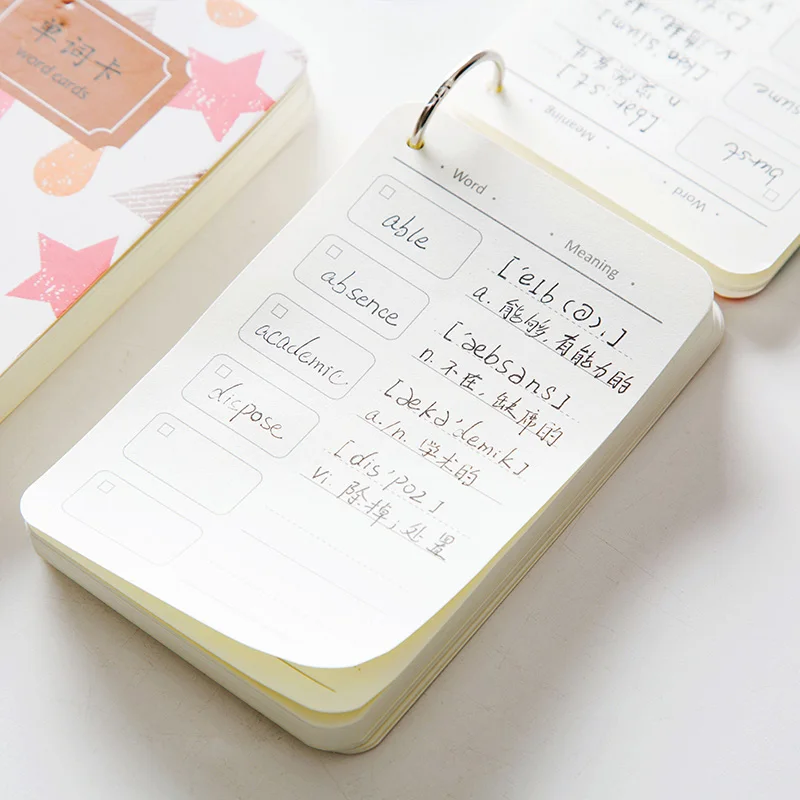 单词卡
word cards
Word
Meaning
able
['eIb(ə).]
a. 能够, 有能力的
absence
['æbsəns]
n. 不在, 缺席的
academic
[ækə'demik]
a./n. 学术的
dispose
[dis'poz]
vi. 除掉; 处置
Word
Meaning
burst
[bər-st]